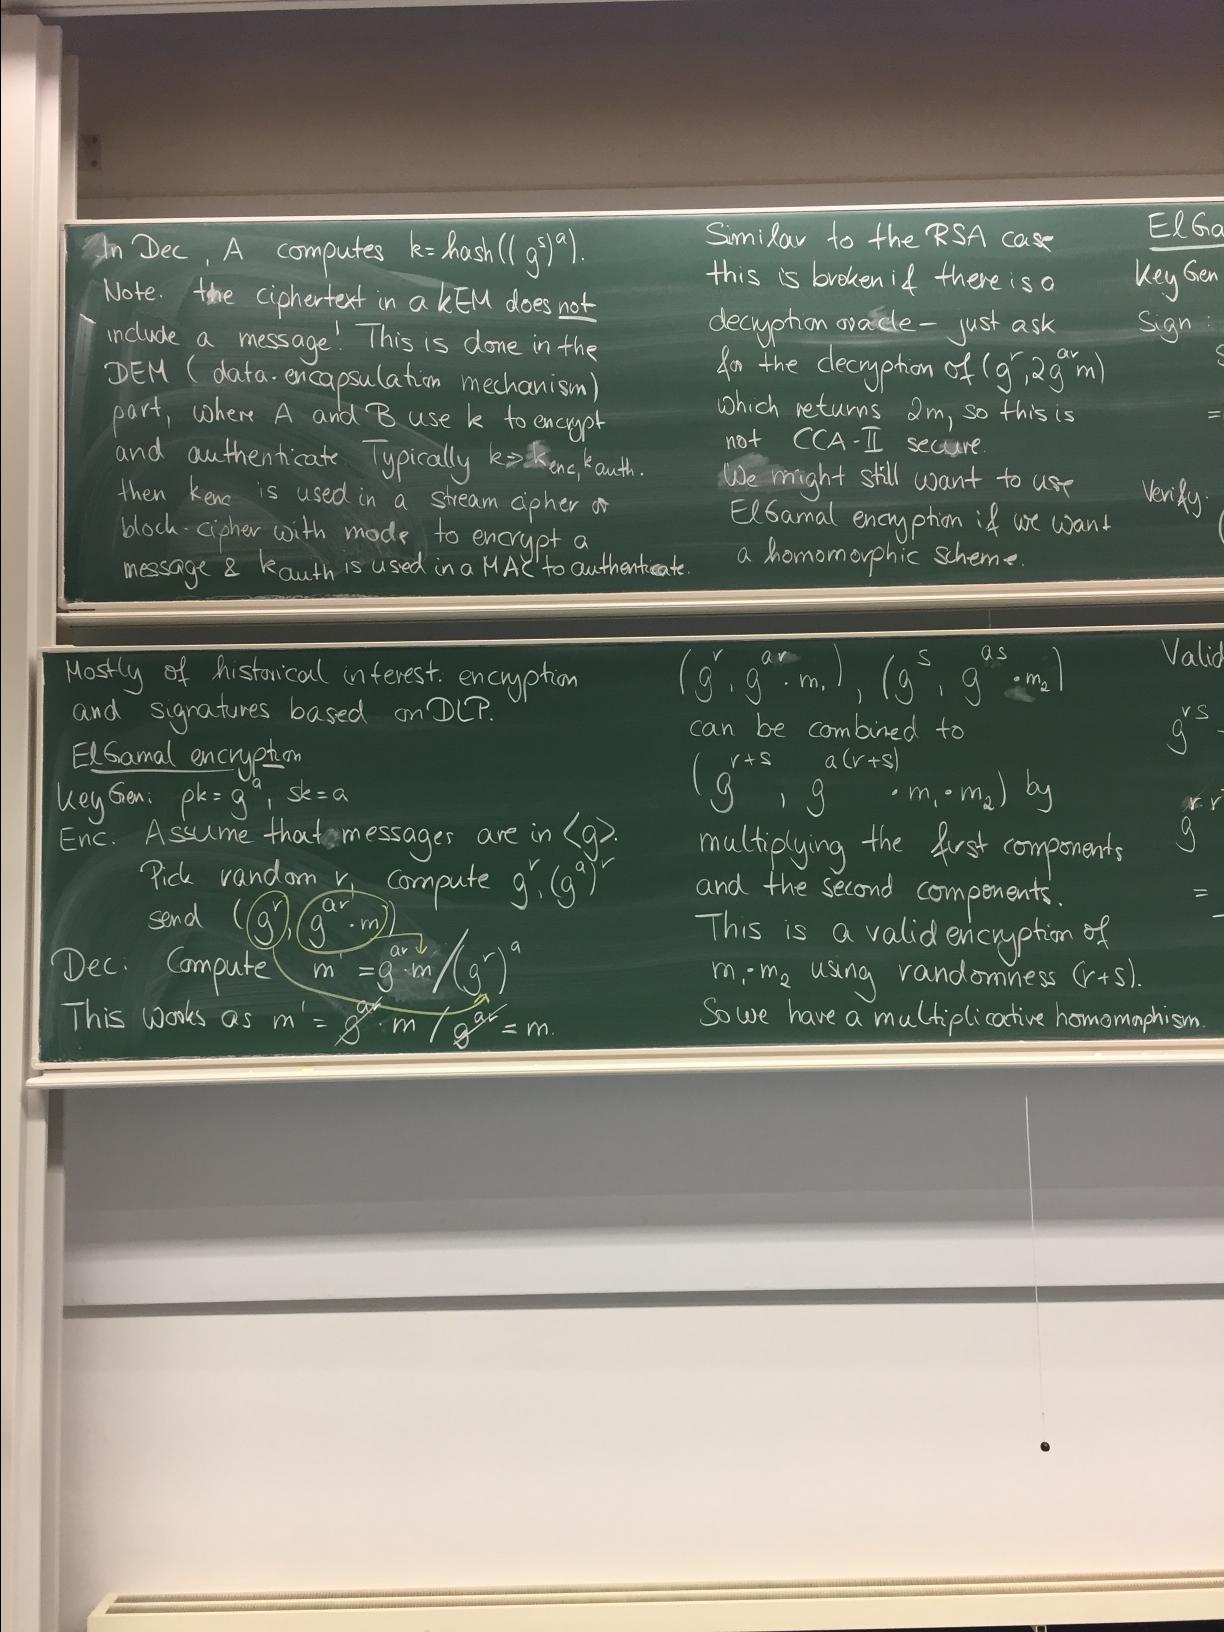 In Dec, A computes k=hash((g^s)^a).
Note. the ciphertext in a KEM does not
include a message! This is done in the
DEM (data-encapsulation mechanism)
part, where A and B use k to encrypt
and authenticate. Typically k => k_enc, k_auth.
then k_enc is used in a stream cipher or
block-cipher with mode to encrypt a
message & k_auth is used in a MAC to authenticate.
Similar to the RSA case
this is broken if there is a
decryption oracle – just ask
for the decryption of (g^r, 2g^{ar}m)
which returns 2m, so this is
not CCA-II secure.
We might still want to use
ElGamal encryption if we want
a homomorphic scheme.
ElGa
KeyGen
Sign:
S
=
Verify:
(
Mostly of historical interest: encryption
and signatures based on DLP.
ElGamal encryption
KeyGen: pk = g^a, sk = a
Enc: Assume that messages are in <g>.
Pick random r, compute g^r, (g^a)^r
send (g^r, g^{ar}·m)
Dec: Compute m' = g^{ar}·m/(g^r)^a
This works as m' = g^{ar}·m / g^{ar} = m.
(g^r, g^{ar}·m_1), (g^s, g^{as}·m_2)
can be combined to
(g^{r+s}, g^{a(r+s)}·m_1·m_2) by
multiplying the first components
and the second components.
This is a valid encryption of
m_1·m_2 using randomness (r+s).
So we have a multiplicative homomorphism.
Valid
g^{rs}
g
=